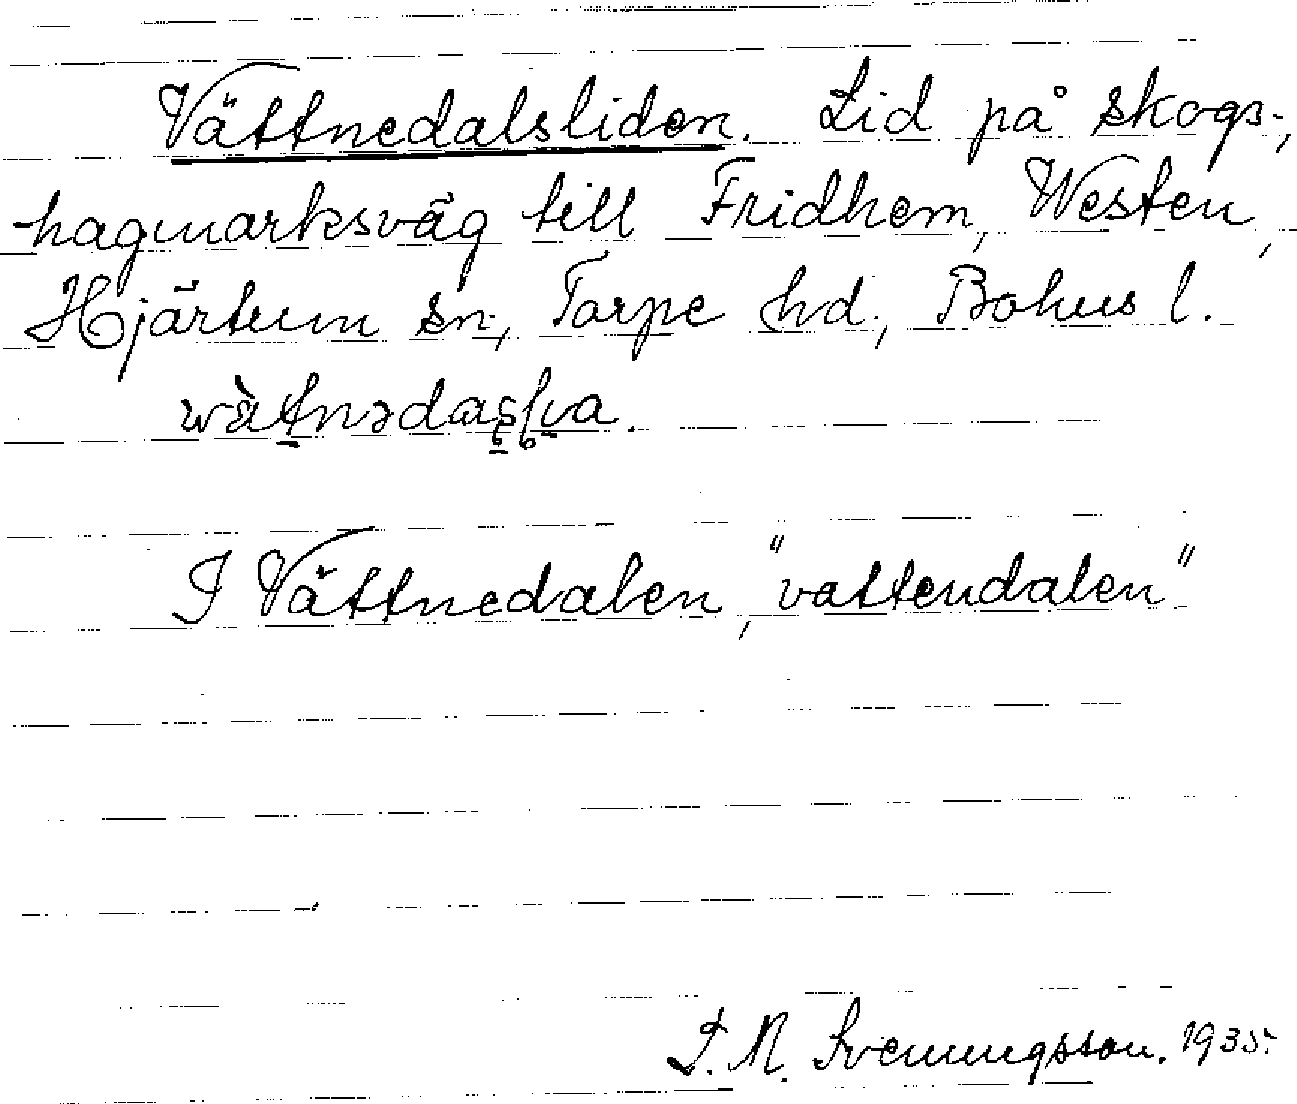 Vättnedalsliden. Lid på skogs-,
-hagmarksväg till Fridhem, Westen,
Hjärtum sn., Torpe hd., Bohus l.
I Vättnedalen, "vattendalen".
J. M. Svenungsson. 1935.